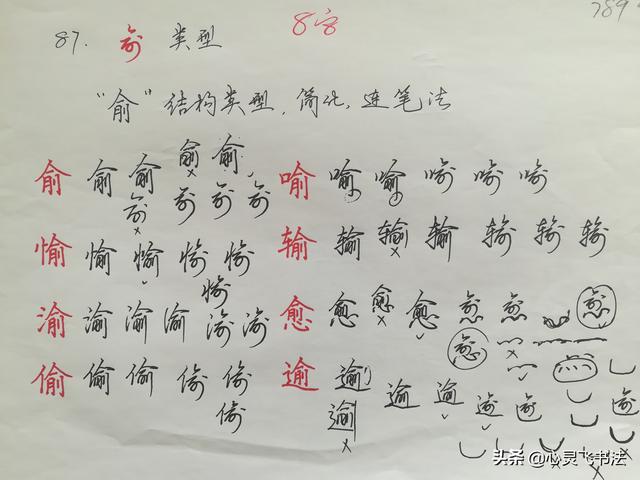 87. 俞 类型 8字 789
“俞”结构类型，简化，连笔法
俞 俞 俞 俞 俞 俞 俞 俞 俞 喻 喻 喻 喻 喻 喻
愉 愉 愉 愉 愉 愉 输 输 输 输 输 输 输
渝 渝 渝 渝 渝 渝 愈 愈 愈 愈 愈 愈 愈 愈
偷 偷 偷 偷 偷 偷 逾 逾 逾 逾 逾 逾 逾 逾
头条 @心灵飞书法